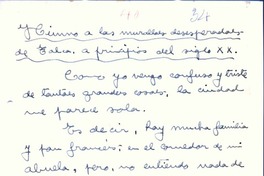 318
Himno a las murallas desesperadas
de Talca. a principios del siglo XX.
Como yo vengo confuso y triste
de tantas grandes cosas, la ciudad
me parece sola.
Es decir, hay mucha familia
y pan francés; en el comedor de mi
abuela, pero, no entiendo nada de